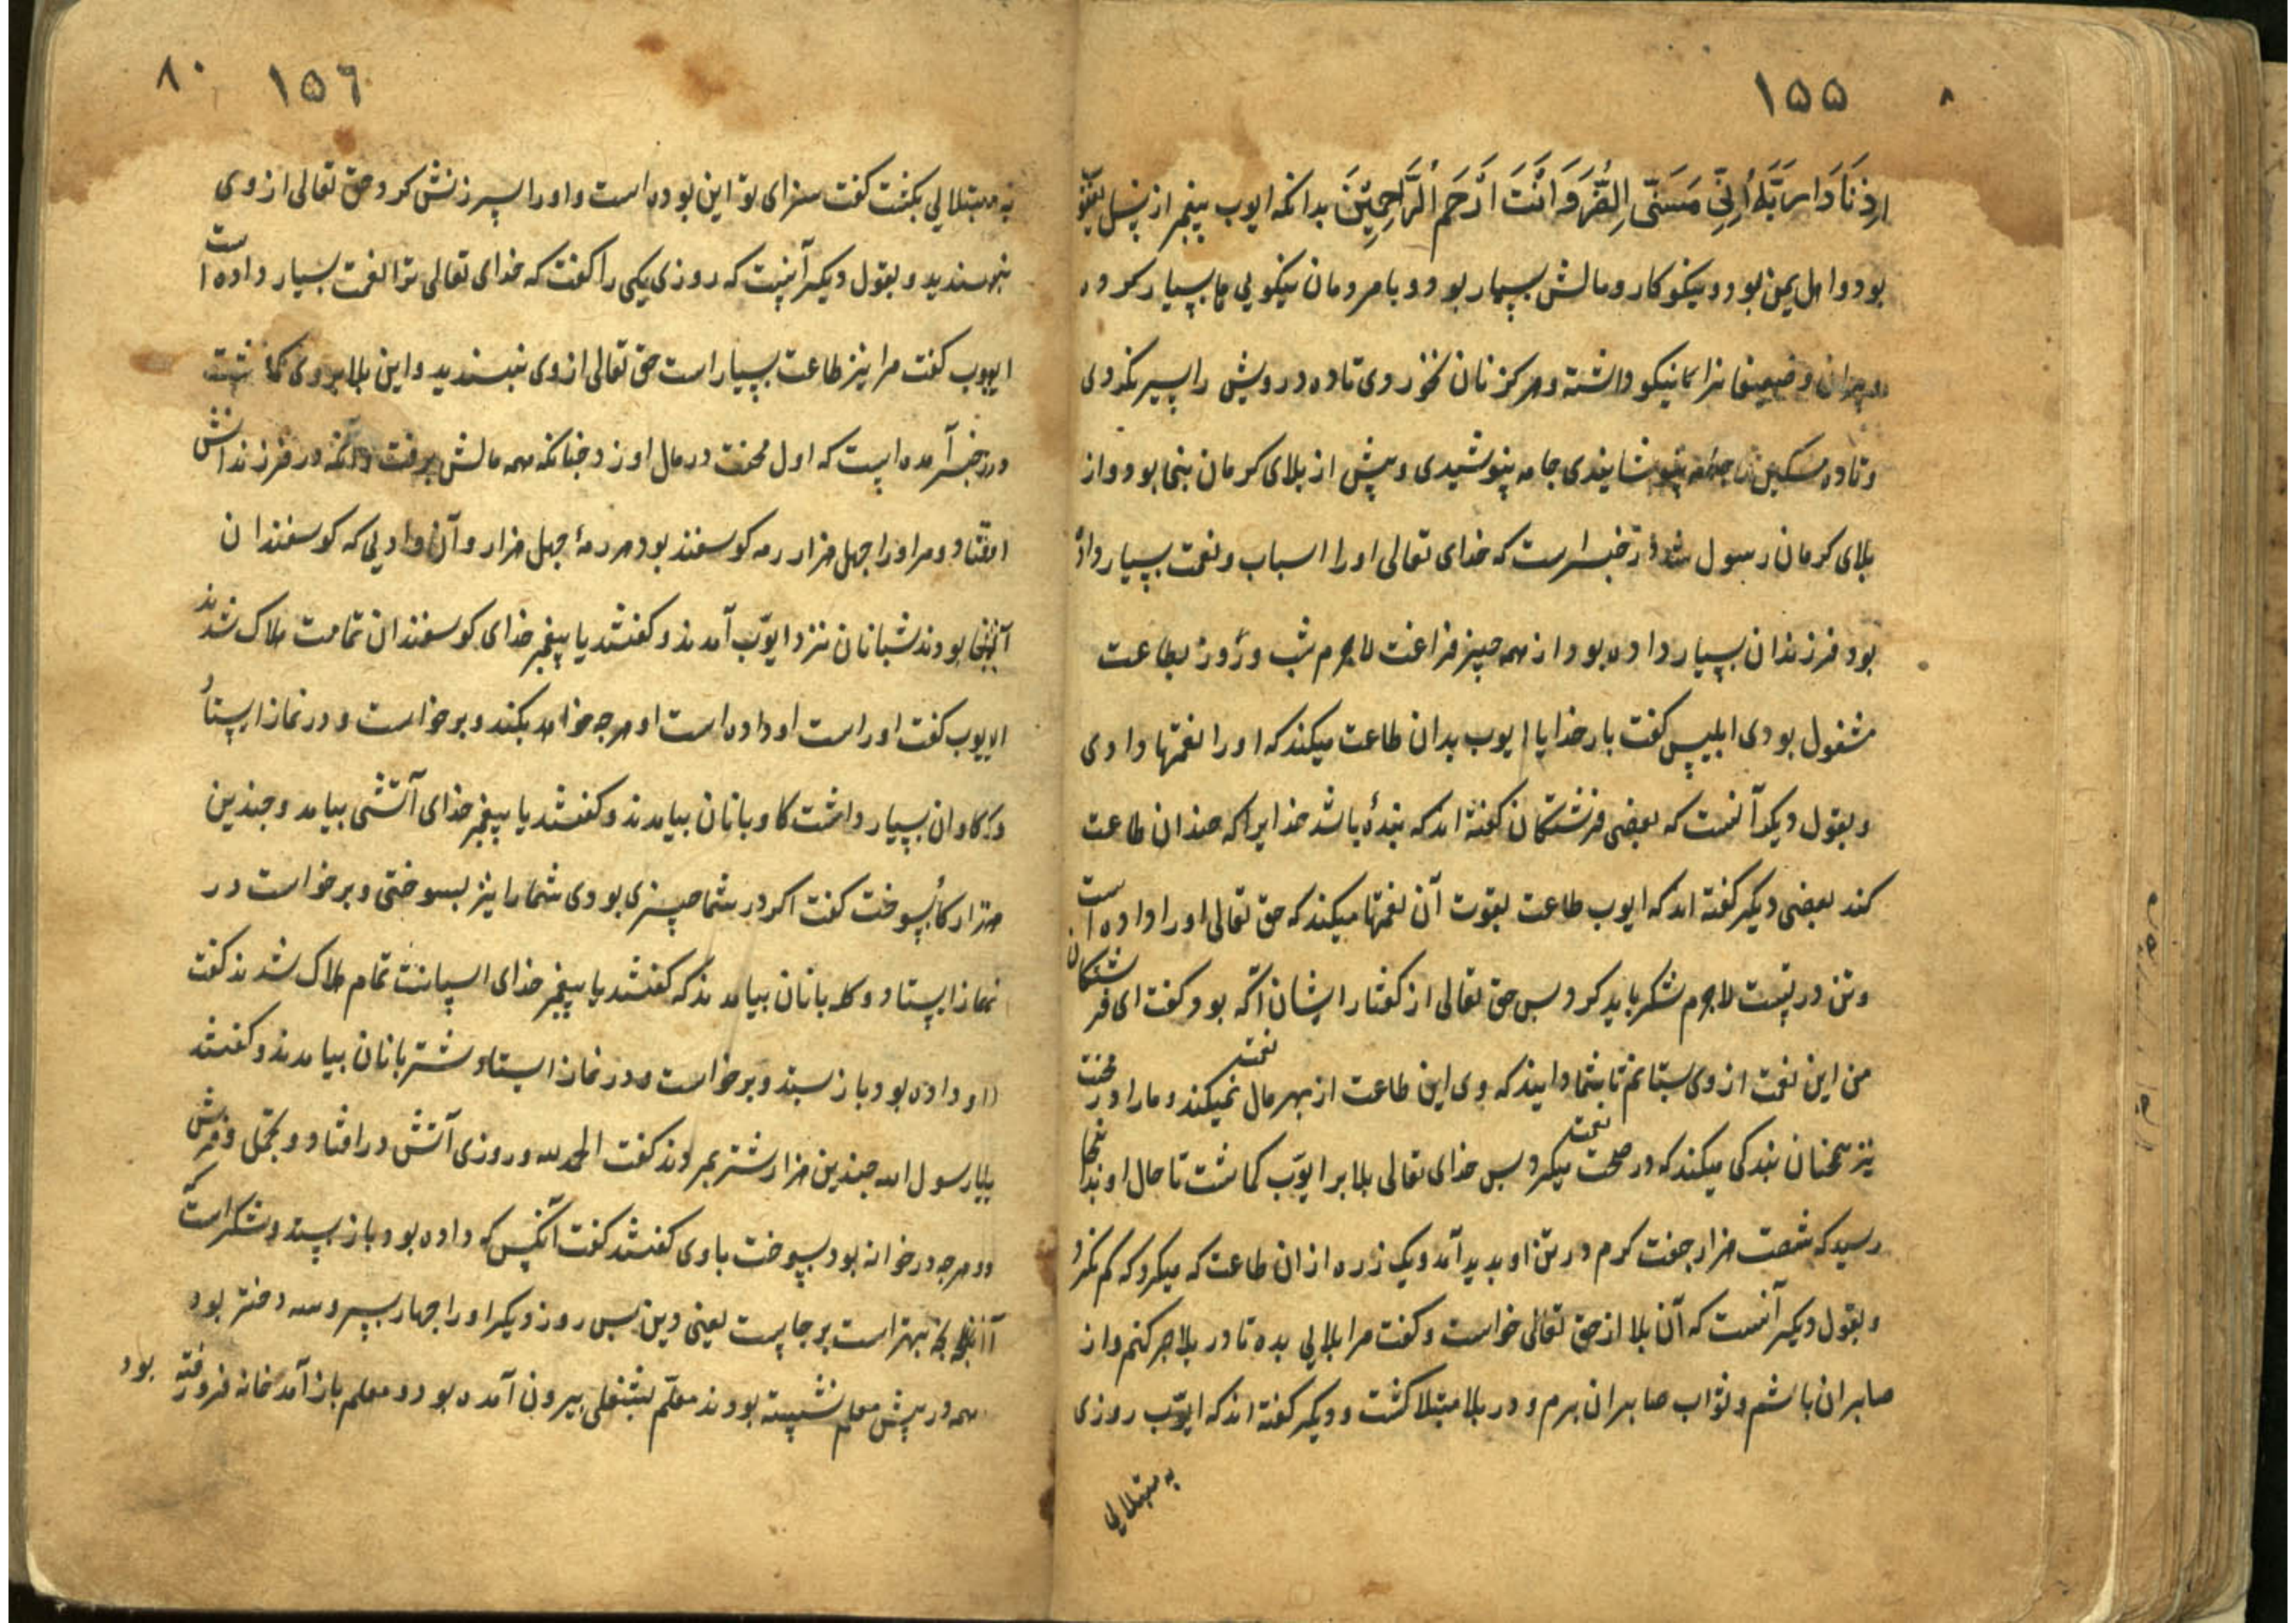 ۱۵۵
اذ نادا ربه انی مسنی الضر و انت ارحم الراحمین بدانکه ایوب پیغمبر از نسل یعقوب
بود و اهل یمن بود و نیکوکار و مالش بسیار بود و با مردمان نیکویی ها بسیار کرده
و ضعیفانرا نیکو داشته و هرکز نان نخوردی تا ده درویش را سیر نکردی
و تا ده مسکین را جامه پنوشایندی جامه پنوشیدی و پیش از بلای کرمان بنی بود و از
بلای کرمان رسول شد در خبر است که خدای تعالی او را اسباب و نعمت بسیار داده
بود فرزندان بسیار داده بود از همه چیز فراغت لاجرم شب و روز بطاعت
مشغول بودی ابلیس کفت بار خدایا ایوب بدان طاعت میکند که او را نعمتها دادی
و بقول دیکر آنست که بعضی فرشتکان کفته اند که بندهٔ باشد خدایرا که چندان طاعت
کند بعضی دیکر کفته اند که ایوب طاعت بقوت آن نعمتها میکند که حق تعالی او را داده است
و تن درست لاجرم شکر باید کرد پس حق تعالی از کفتار ایشان آکه بود کفت ای فرشتکان
من این نعمت از وی بستانم تا شما دانید که وی این طاعت از بهر مال نعمت نمیکند و ما را در محنت
نیز همچنان بندکی میکند که در صحت نعمت میکرد پس خدای تعالی بلا بر ایوب کماشت تا حال او بدانجا
رسید که شصت هزار جفت کرم در تن او بدید آمد و یک زره از ان طاعت که میکرد که کم نکرد
و بقول دیکر آنست که آن بلا از حق تعالی خواست و کفت مرا بلایی بده تا در بلا صبر کنم و از
صابران باشم و ثواب صابران برم و در بلا مبتلا کشت و دیکر کفته اند که ایوب روزی
به مبتلایی
۱۵٦ ۸۰
به مبتلایی بکذشت کفت سزای تو این بوده است و او را سرزنش کرد حق تعالی از وی
نپسندید و بقول دیکر آنست که روزی یکی را کفت که خدای تعالی ترا نعمت بسیار داده است
ایوب کفت مرا نیز طاعت بسیار است حق تعالی از وی نپسندید و این بلا بر وی کماشت
در خبر آمده است که اول محنت در مال او زد چنانکه همه مالش برفت و آنکه در فرزندانش
افتاد و مر او را چهل هزار رمه کوسفند بود هر رمهٔ چهل هزار و آن وادیی که کوسفندان
آنجا بودند شبانان نزد ایوب آمدند و کفتند یا پیغمبر خدای کوسفندان تمامت هلاک شدند
ایوب کفت او راست او داده است او هرچه خواهد بکند و برخواست و در نماز ایستاد
و کاوان بسیار داشت کاوبانان بیامدند و کفتند یا پیغمبر خدای آتشی بیامد و چندین
هزار کاو بسوخت کفت اکر در شما چیزی بودی شما را نیز بسوختی و برخواست در
نماز ایستاد و کله بانان بیامدند که کفتند یا پیغمبر خدای اسپانت تمام هلاک شدند کفت
او داده بود باز ستد و برخواست و در نماز ایستاد شتربانان بیامدند و کفتند
یا رسول الله چندین هزار شتر بمردند کفت الحمد لله و روزی آتش در افتاد و تجمل و فرش
و هرچه در خانه بود بسوخت با وی کفتند کفت آنکس که داده بود باز ستد و شکر است که
آنچه بهتر است بر جاست یعنی دین پس روز دیکر او را چهار پسر و سه دختر بود
همه در پیش معلم نشسته بودند معلم بشغلی بیرون آمده بود و معلم باز آمد خانه فرو رفته بود